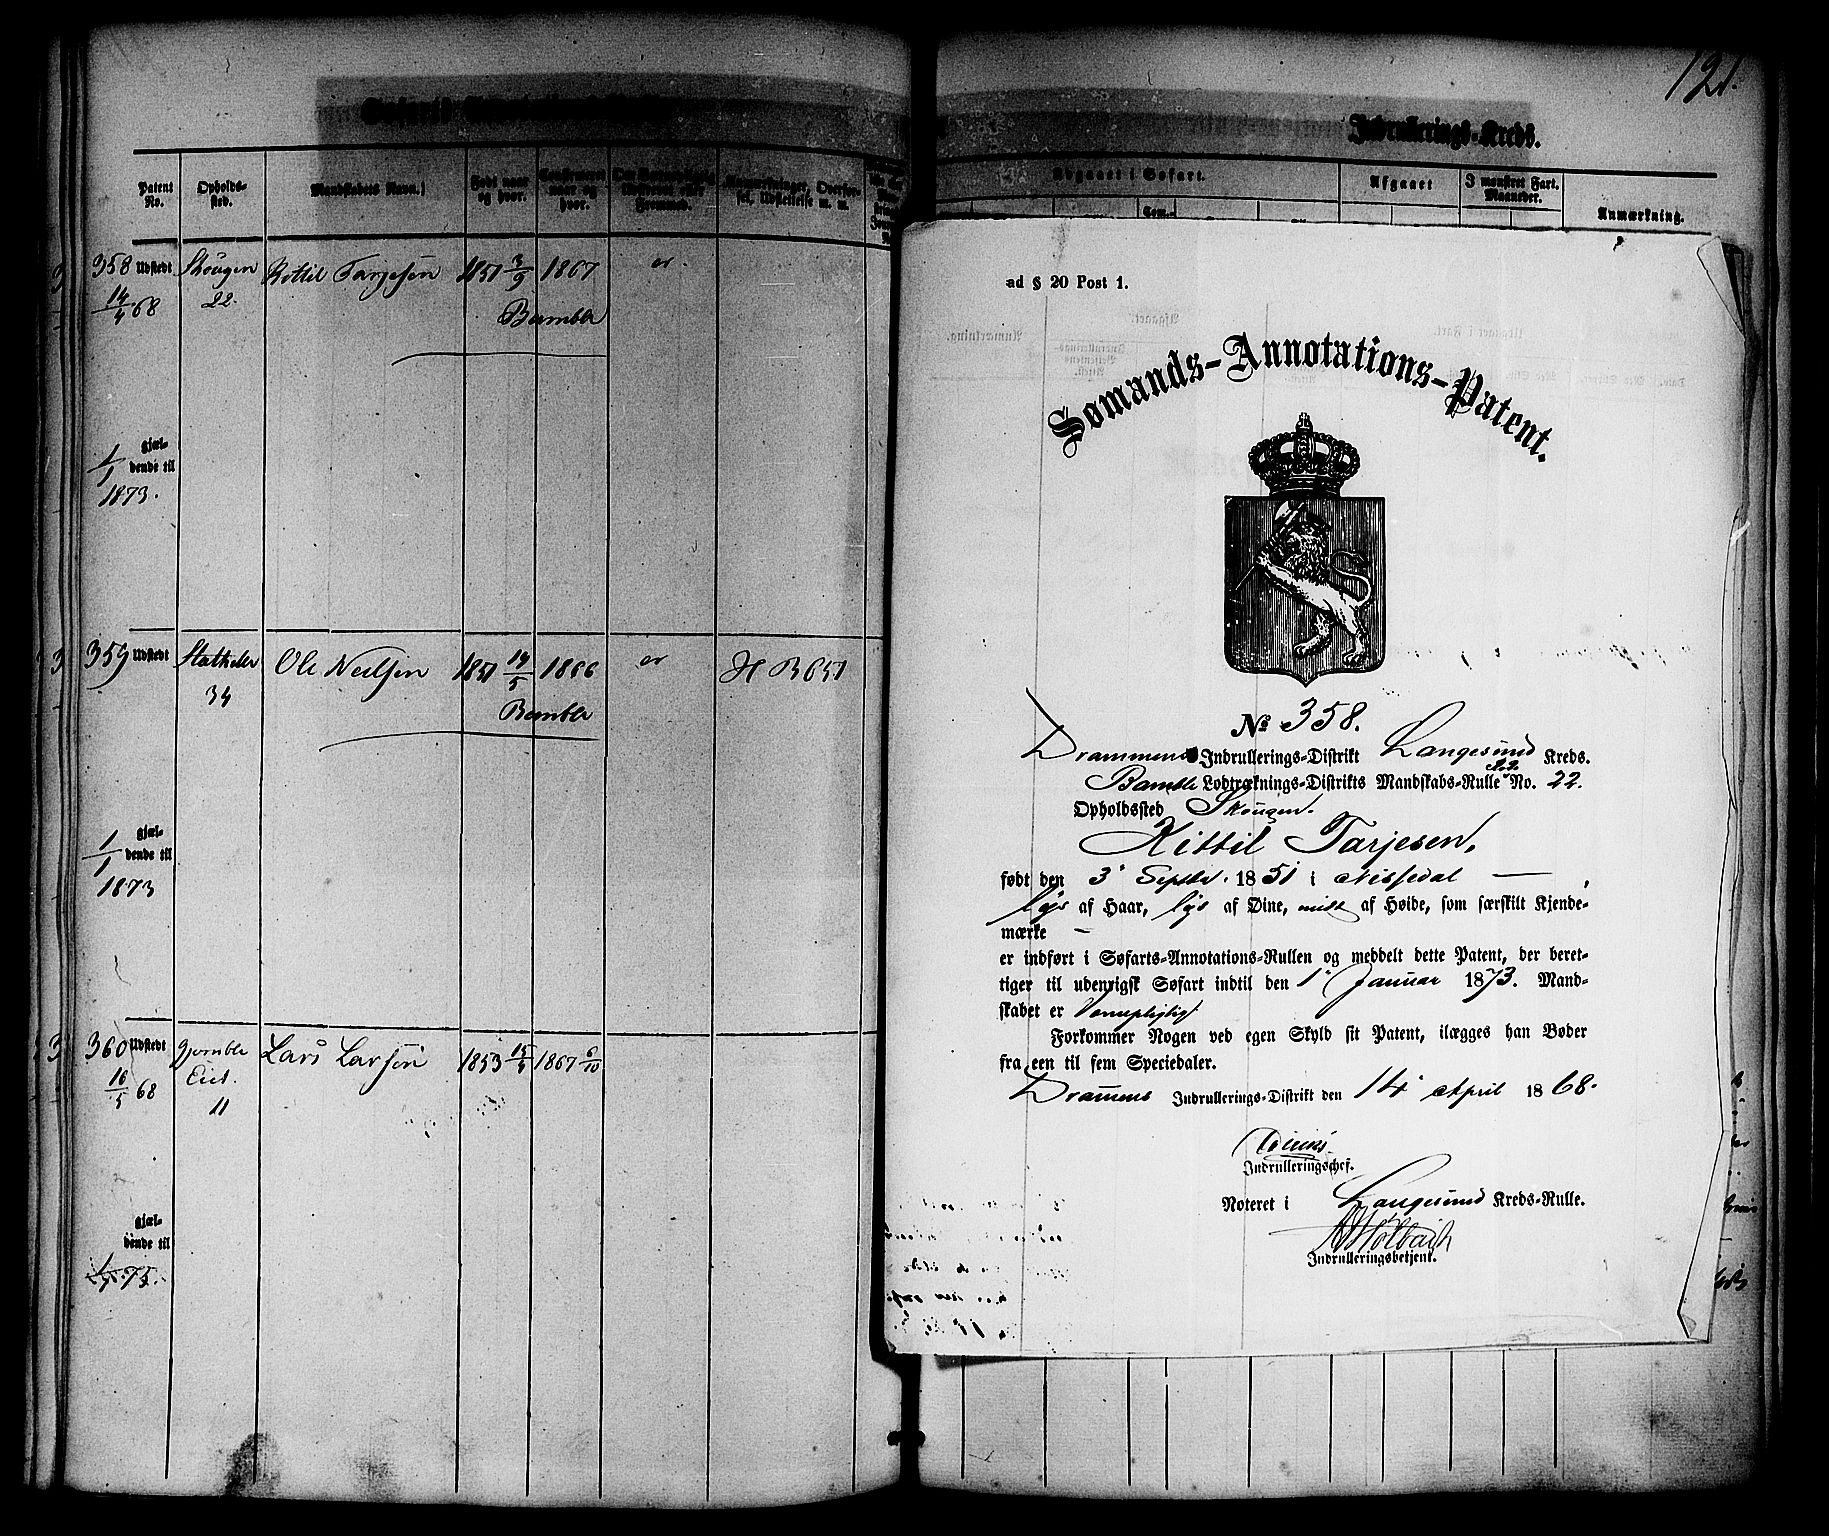 121.
Indrullerings-Kreds.
Patent No.
Opholds-sted.
Mandskabets Navn.
Født naar og hvor.
Confirmeret naar og hvor.
Anmærkninger, Overfør-sel, Udslettelse m. m.
Afgaaet i Søfart.
Afgaaet
I mønstret Fart. Maaneder.
Anmærkning.
358 Udstedt Skougen Kittil Tarjesen 1851 3/9 1867 er
14/4 68 22. Bamble
1/1 gjæl-
dende til
1873.
359 Udstedt Stathelle Ole Neilsen 1851 14/5 1866 er H R 651
34 Bamble
1/1 gjæl-
dende til
1873
360 Udstedt Gjømble Lars Larsen 1853 15/4 1867 6/10
16/5 68 Eiet.
11
gjæl-
dende til
1/1 75.
ad § 20 Post 1.
Sømands-Annotations-Patent.
No 358.
Drammens Indrullerings-Distrikt Langesund Kreds.
Bamble Lodtræknings-Distrikts Mandskabs-Rulle No. 22.
Opholdssted Skougen.
Kittil Tarjesen,
født den 3 Septbr. 1851 i Nissedal — ,
lys af Haar, lys af Øine, midt af Høide, som særskilt Kjende-
mærke —
er indført i Søfarts-Annotations-Rullen og meddelt dette Patent, der beret-
tiger til udenrigsk Søfart indtil den 1 Januar 1873. Mand-
skabet er Værnepligtigt
Forkommer Nogen ved egen Skyld sit Patent, ilægges han Bøder
fra een til fem Speciedaler.
Drammens Indrullerings-Distrikt den 14 April 1868.
Indrulleringschef.
Noteret i Langesund Kreds-Rulle.
Indrulleringsbetjent.